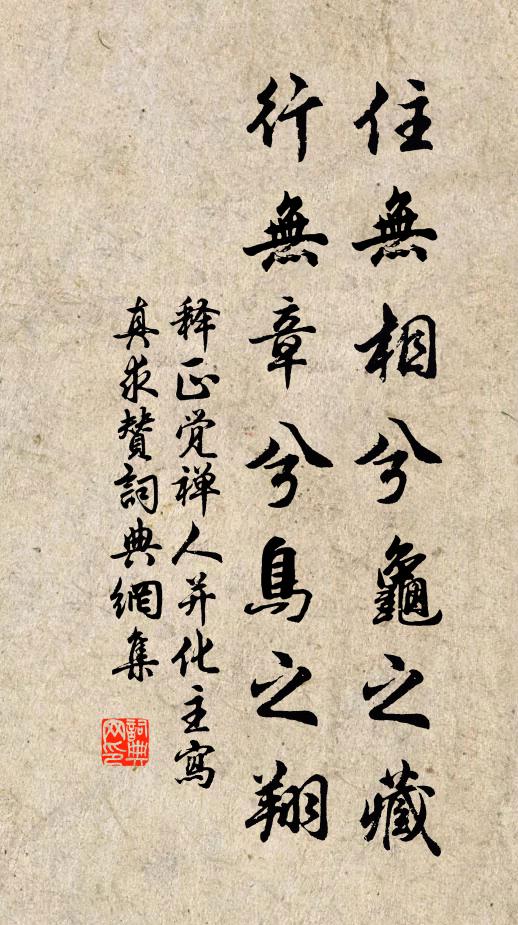 住無相兮龜之藏
行無章兮鳥之翔
释正觉禅人并化主寫
真求赞詞典網集
詞典网印